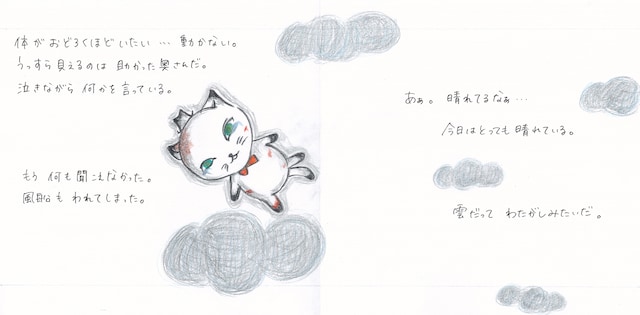 体が おどろくほど いたい … 動かない。
うっすら 見えるのは 助かった 奥さんだ。
泣きながら 何かを 言っている。
もう 何も 聞こえなかった。
風船も われてしまった。
あぁ。 晴れてるなぁ…
今日はとっても 晴れている。
雲だって わたがしみたいだ。